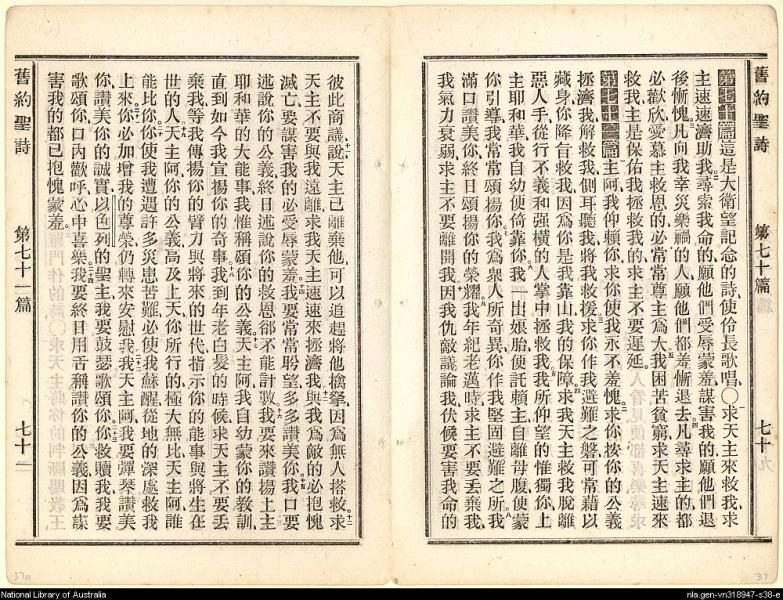 舊約聖詩 第七十篇 七十
第七十篇這是大衛望記念的詩使伶長歌唱〇求天主來救我求
主速速濟助我尋索我命的願他們受辱蒙羞謀害我的願他們退
後慚愧凡向我幸災樂禍的人願他們都羞慚退去凡尋求主的都
必歡欣愛慕主救恩的必常常尊主為大我困苦貧窮求天主速來
救我主是保佑我拯救我的求主不要遲延
第七十一篇主阿我仰賴你求你使我永不羞愧求你按你的公義
拯濟我解救我側耳聽我將我救援求你作我避難之磐可常藉以
藏身你降旨救我因為你是我靠山我的保障求我天主救我脫離
惡人手從行不義和強橫的人掌中拯救我我所仰望的惟獨你上
主耶和華我自幼便倚靠你我一出娘胎便託賴主自離母腹便蒙
你引導我常常頌揚你我為眾人所奇異你作我堅固避難之所我
滿口讚美你終日頌揚你的榮耀我年紀老邁時求主不要丟棄我
我氣力衰弱求主不要離開我因我仇敵議論我伏候要害我命的
彼此商議說天主已離棄他可以追趕將他擒拏因為無人搭救求
天主不要與我遠離求我天主速速來拯濟我與我為敵的必抱愧
滅亡要謀害我的必受辱蒙羞我要常常盼望多多讚美你我口要
述說你的公義終日述說你的救恩卻不能計數我要來讚揚主主
耶和華的大能事我惟稱頌你的公義天主阿我自幼蒙你的教訓
直到如今我宣揚你的奇事我到年老白髮的時候求天主不要丟
棄我等我傳揚你的臂力與將來的世代指示你的能事與將生在
世的人天主阿你的公義高及上天你所行的極大無比天主阿誰
能比你你使我遭遇許多災患苦難必使我蘇醒從地的深處救我
上來你必加增我的尊榮仍轉來安慰我我天主阿我要彈琴讚美
你讚美你的誠實以色列的聖主我要鼓瑟歌頌你你救贖我我要
歌頌你口內歡呼心中喜樂我要終日用舌稱讚你的公義因為謀
害我的都已抱愧蒙羞
舊約聖詩 第七十一篇 七十
National Library of Australia
nla.gen-vn318947-s38-e